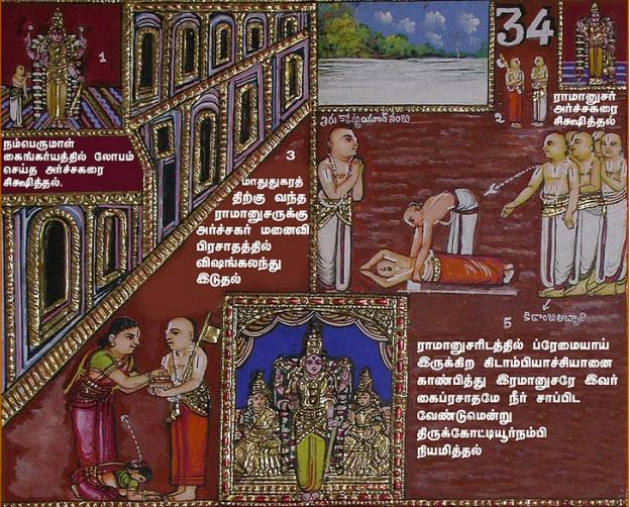 1
நம்பெருமாள்
கைங்கர்யத்தில் லோபம்
செய்த அர்ச்சகரை
சிக்ஷித்தல்.
34
2
ராமானுசர்
அர்ச்சகரை
சிக்ஷித்தல்
3
மாதுதுகரத்
திற்கு வந்த
ராமானுசருக்கு
அர்ச்சகர் மனைவி
பிரசாதத்தில்
விஷங்கலந்து
இடுதல்
5
ராமானுசரிடத்தில் ப்ரேமையாய்
இருக்கிற கிடாம்பியாச்சியானை
காண்பித்து இரமானுசரே இவர்
கைப்ரசாதமே நீர் சாப்பிட
வேண்டுமென்று
திருக்கோட்டியூர்நம்பி
நியமித்தல்